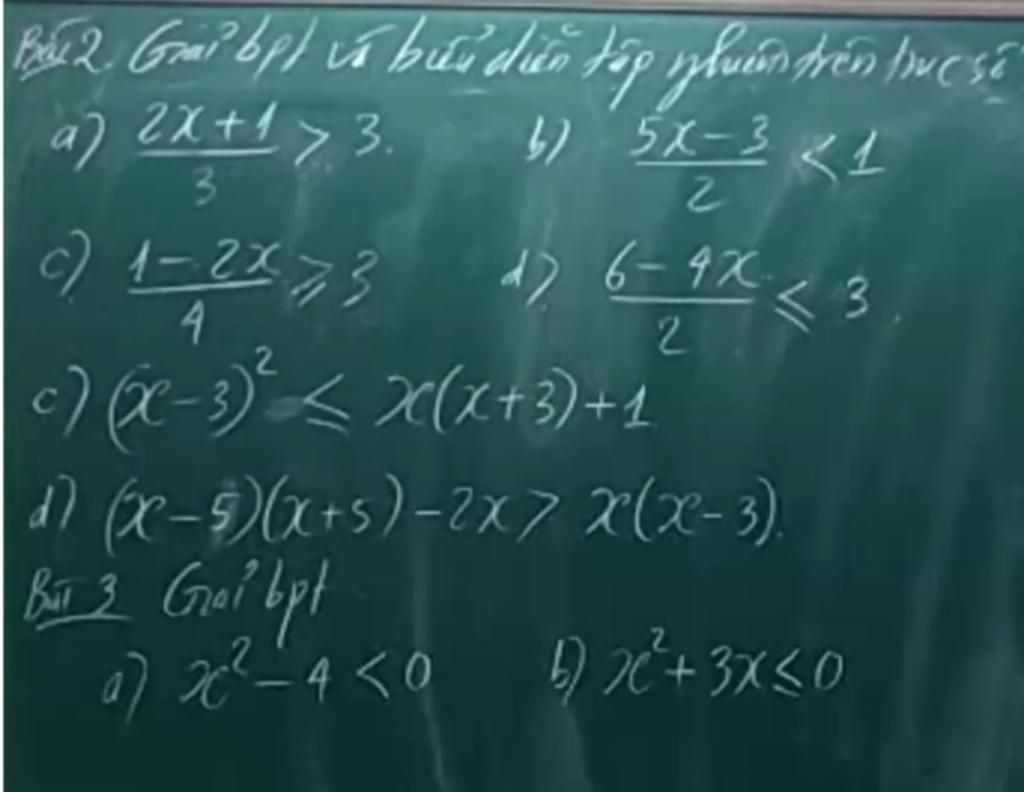 Bài 2. Giải bpt và biểu diễn tập nghiệm trên trục số
a) \frac{2x+1}{3} > 3. b) \frac{5x-3}{2} < 1
c) \frac{1-2x}{4} ⩾ 3 d) \frac{6-4x}{2} ⩽ 3.
c) (x-3)² ⩽ x(x+3)+1
d) (x-5)(x+5)-2x > x(x-3).
Bài 3 Giải bpt
a) x²-4 < 0 b) x²+3x ⩽ 0